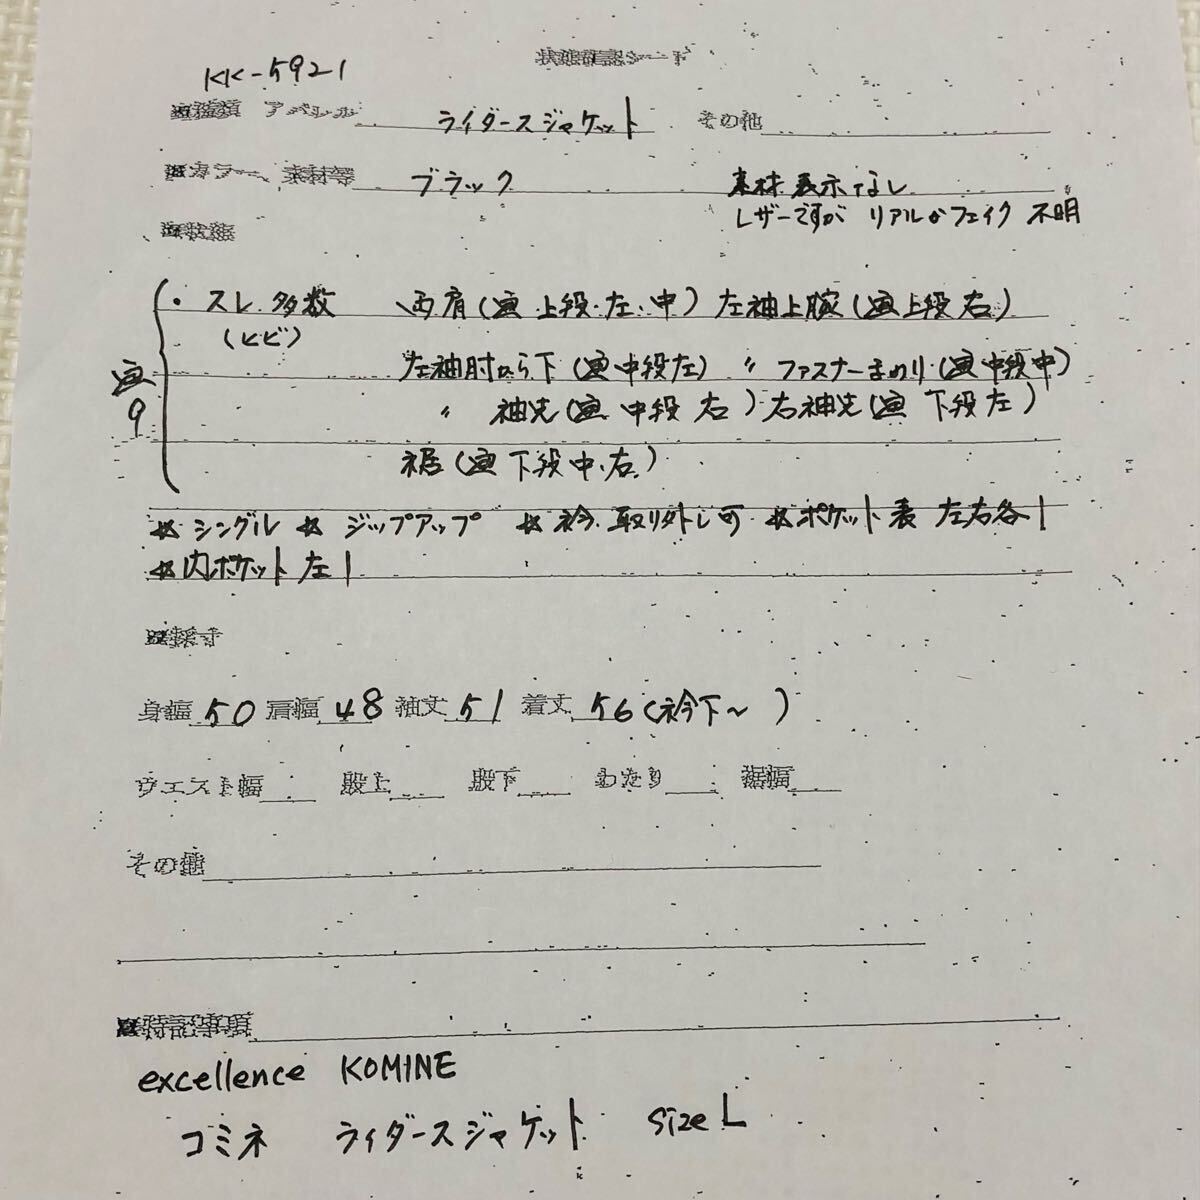 状態確認シート
KK-5921
アパレル ライダースジャケット その他
カラー、素材等 ブラック 素材表示なし
レザーですが リアルかフェイク 不明
・スレ多数 両肩(画上段・左・中) 左袖上腕(画上段右)
(ヒビ)
左袖肘から下(画中段左) 〃 ファスナーまわり(画中段中)
画9
〃 袖先(画中段右) 右袖先(画下段左)
裾(画下段中・右)
☆シングル ☆ジップアップ ☆衿取り外し可 ☆ポケット表 左右各1
☆内ポケット左1
■採寸
身幅 50 肩幅 48 袖丈 51 着丈 56(衿下〜 )
ウエスト幅 股上 股下 わたり 裾幅
その他
■特記事項
excellence KOMINE
コミネ ライダースジャケット size L